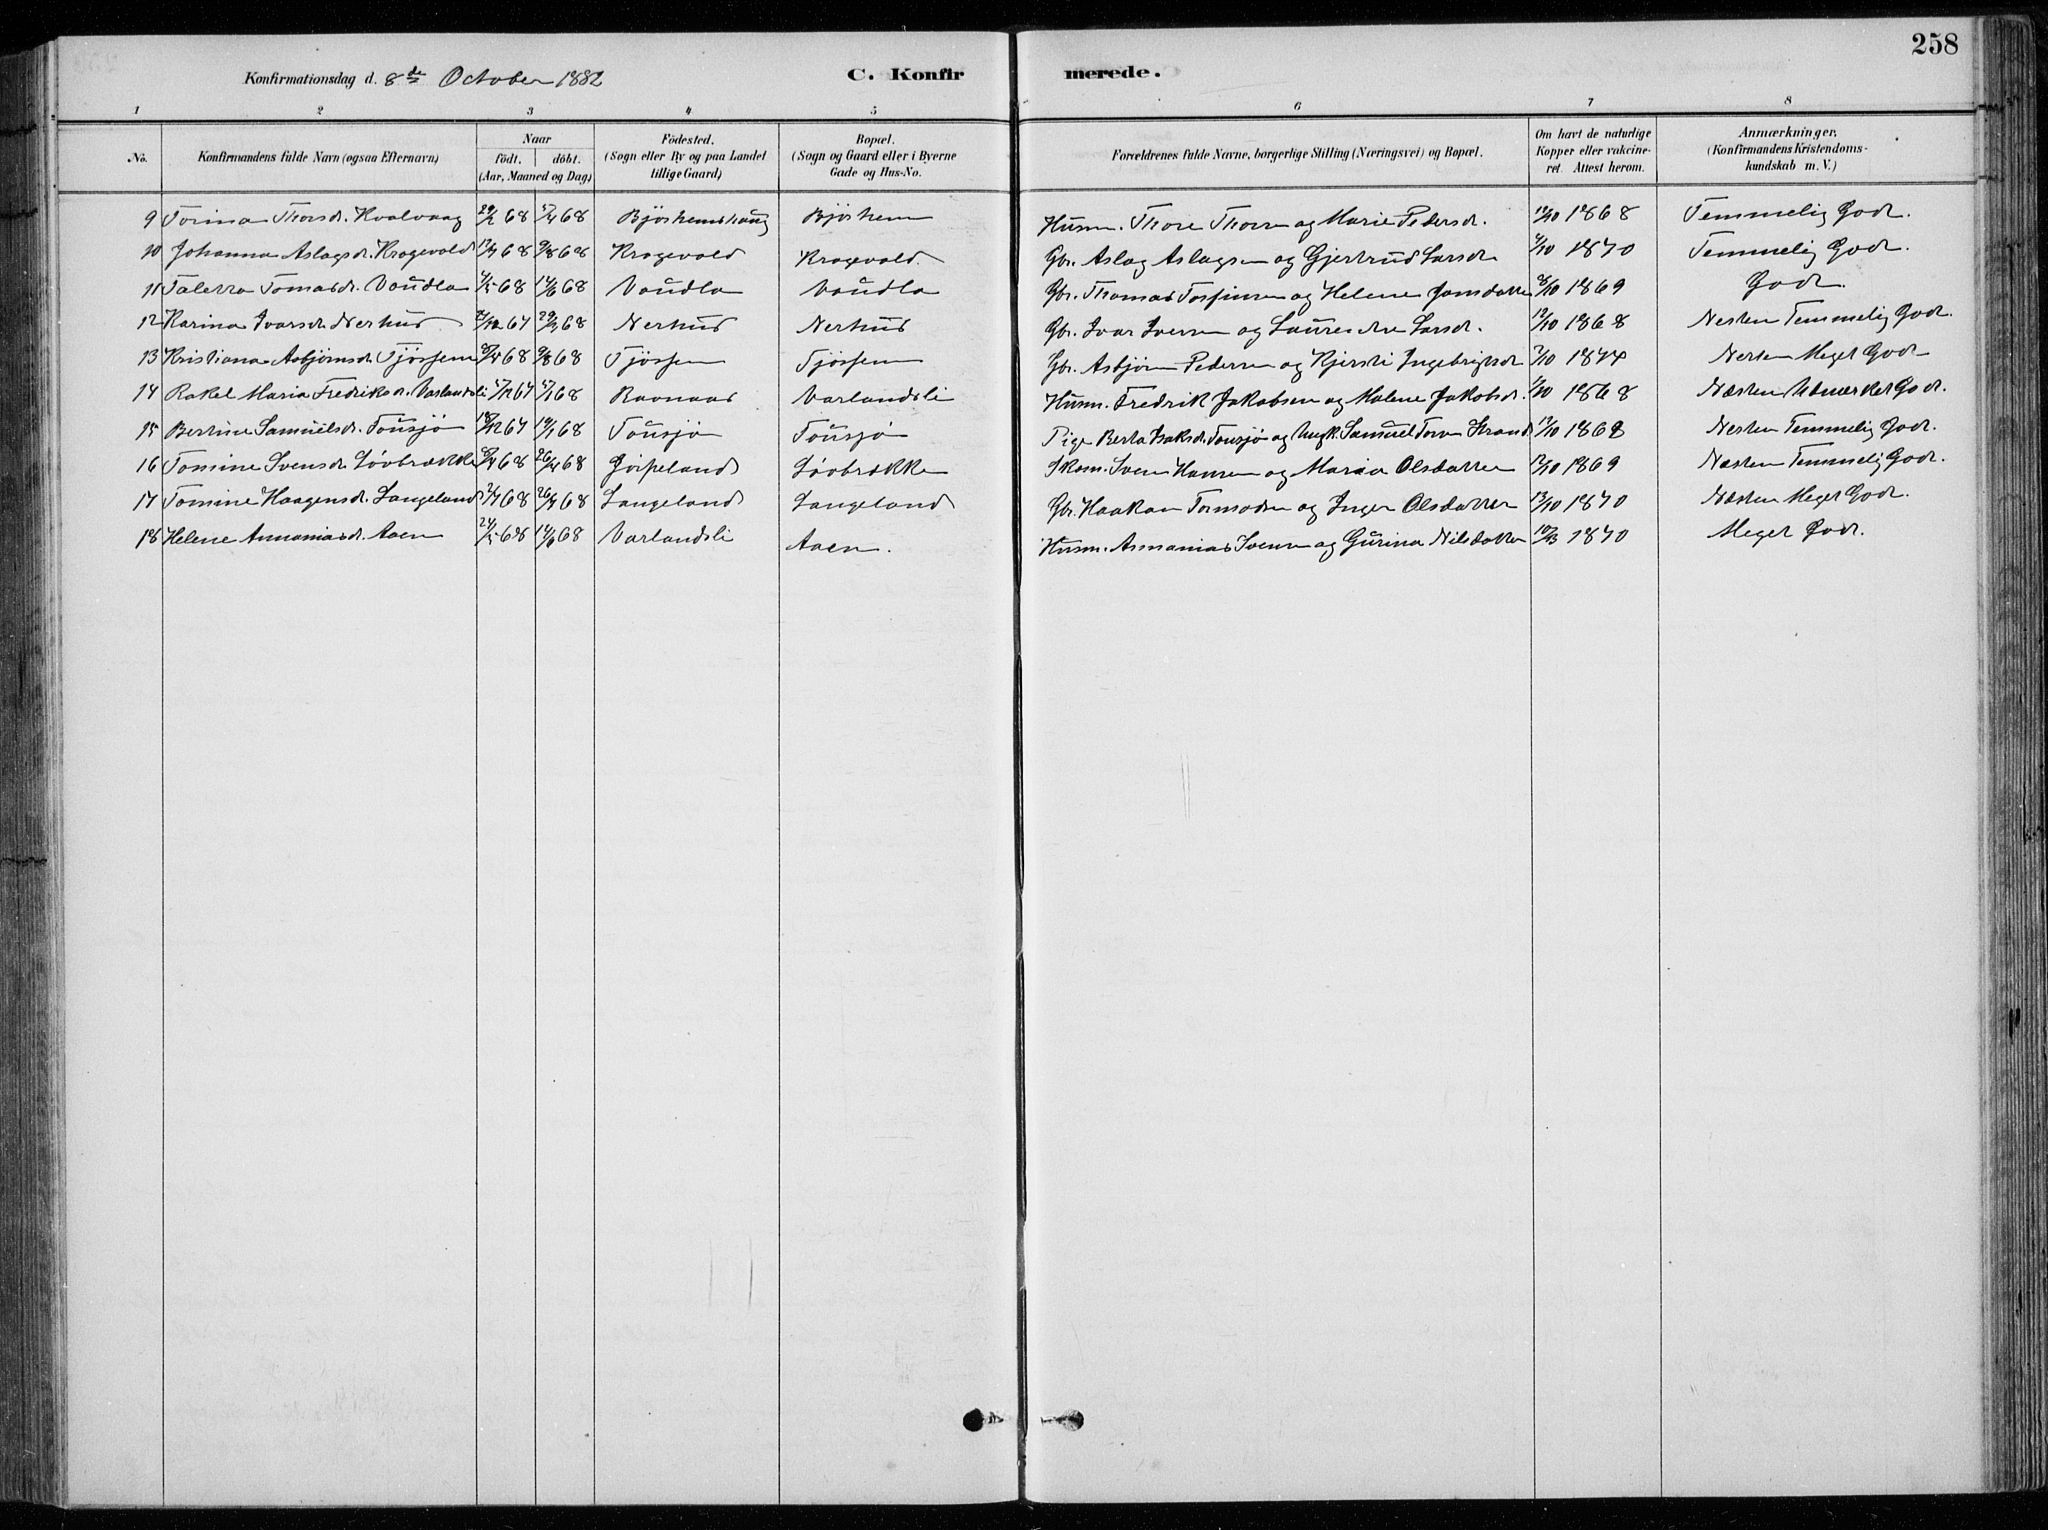 258
Konfirmationsdag d. 8de October 1882 C. Konfirmerede.
1 2 3 4 5 6 7 8
No. Konfirmandens fulde Navn (ogsaa Efternavn) Naar födt. döbt. (Aar, Maaned og Dag) Födested. (Sogn eller By og paa Landet tillige Gaard) Bopæl. (Sogn og Gaard eller i Byerne Gade og Hus-No. Forældrenes fulde Navne, borgerlige Stilling (Næringsvei) og Bopæl. Om havt de naturlige Kopper eller vakcineret. Attest herom. Anmærkninger. (Konfirmandens Kristendomskundskab m. V.)
9 Torina Thorsdr. Hvalvaag 29/2 68 5/4 68 Bjösheimshaug Bjösheim Husm. Thore Thorsen og Marie Pedersd. 12/10 1868 Temmelig Godt.
10 Johanna Aslagsdr. Kragevold 68 9/8 68 Kragevold Kragevold. Gbr. Aslag Aslagsen og Gjertrud Larsdr /10 1870 Temmelig Godt.
11 Taletta Tomasdr. Voudla 68 14/6 68 Voudla Voudla Gbr. Thomas Torfinsen og Helene Jonsdatter /10 1869 Godt.
12 Karina Ivarsdr. Nerhus /12 67 29/3 68 Nerhus Nerhus Gbr. Ivar Iversen og Larsdr. 12/10 1868 Nesten Temmelig Godt.
13 Kristiana Asbjörnsdr. Tjössem /4 68 9/8 68 Tjössem Tjössem Gbr. Asbjörn Pedersen og Kjersti Ingebrigtsdr /10 1874 Nesten Meget Godt
14 Rakel Maria Fredriksdr. Varlandsli /12 67 68 Ravnaas Varlandsli Husm. Fredrik Jakobsen og Malene Jakobsdr. /10 1868 Næsten Udmærket Godt.
15 Bertine Samuelsdr. Tousjö /12 67 19/1 68 Tousjö Tousjö Pige Berta Isaksdr. Tousjö og Ungk. Samuel Strand 12/10 1868 Nesten Temmelig Godt.
16 Tomine Svensdr. Lövbrække /4 68 26/4 68 Jörpeland Lövbrække Skom. Sven Hansen og Maria Olsdatter 12/10 1869 Næsten Temmelig Godt.
17 Tomine Haagensdr. Langeland 68 26/4 68 Langeland Langeland Gbr. Haakon Tormodsen og Inger Olsdatter 13/10 1870 Næsten Meget Godt.
18 Helene Annaniasdr. Aaen 24/5 68 14/6 68 Varlandsli Aaen. Husm. Annanias Svensen og Gurina Nilsdatter 1870 Meget Godt.